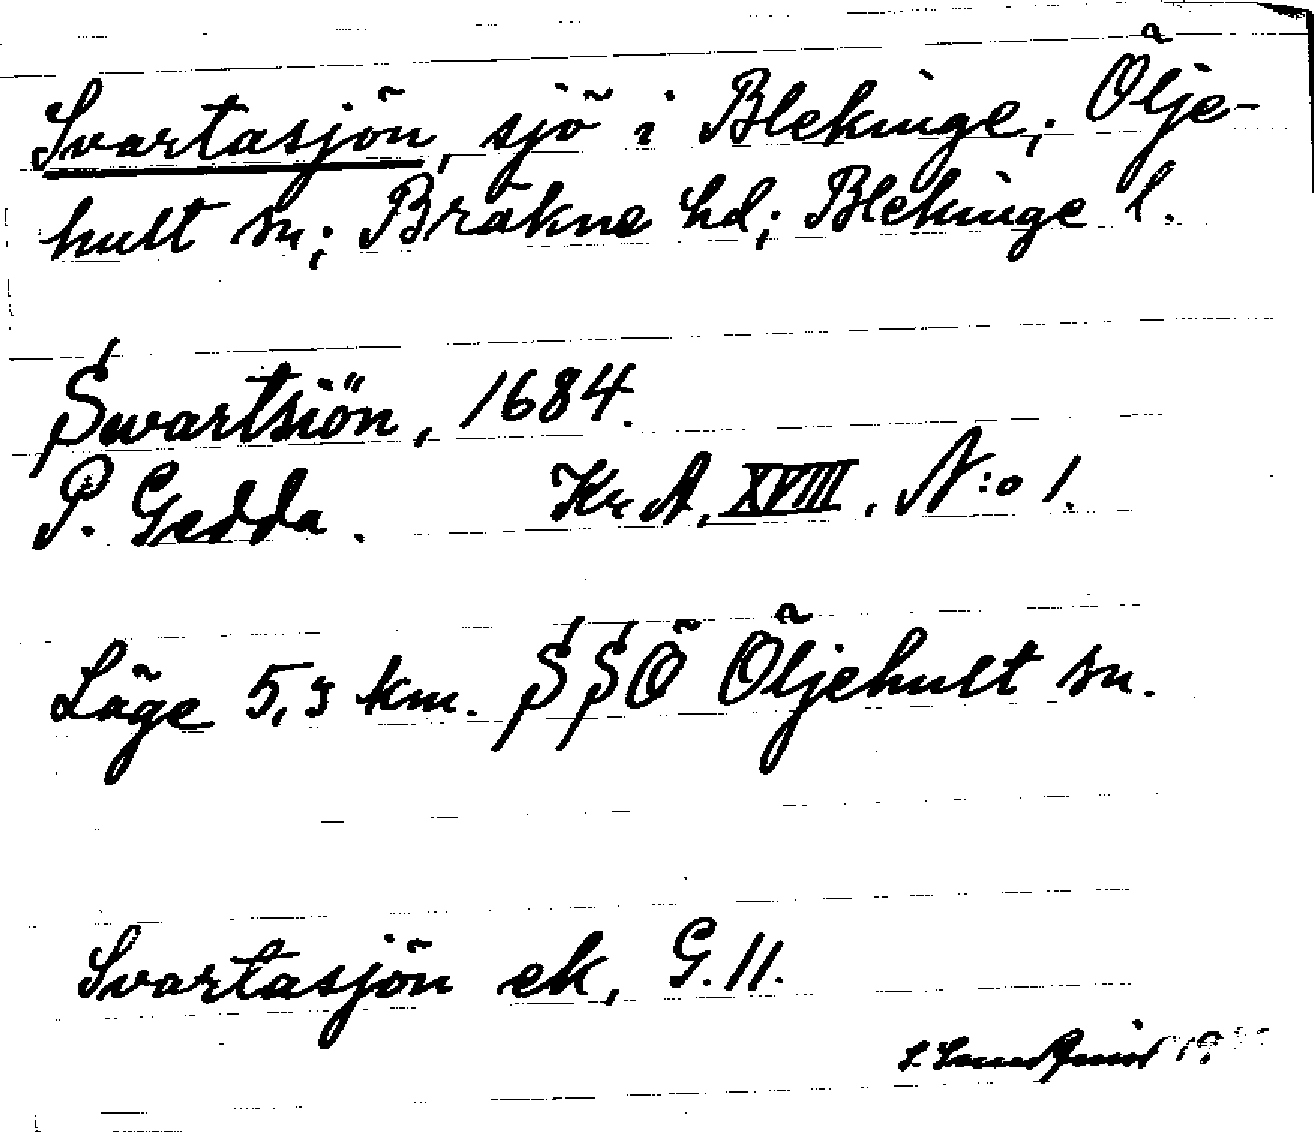 Svartasjön, sjö i Blekinge; Ölje-
hult sn; Bräkne hd; Blekinge l.
Swartsiön, 1684.
P. Gedda. Kr A, XVIII, N:o 1.
Läge 5,3 km. SSÖ Öljehult sn.
Svartasjön ek, G.11.